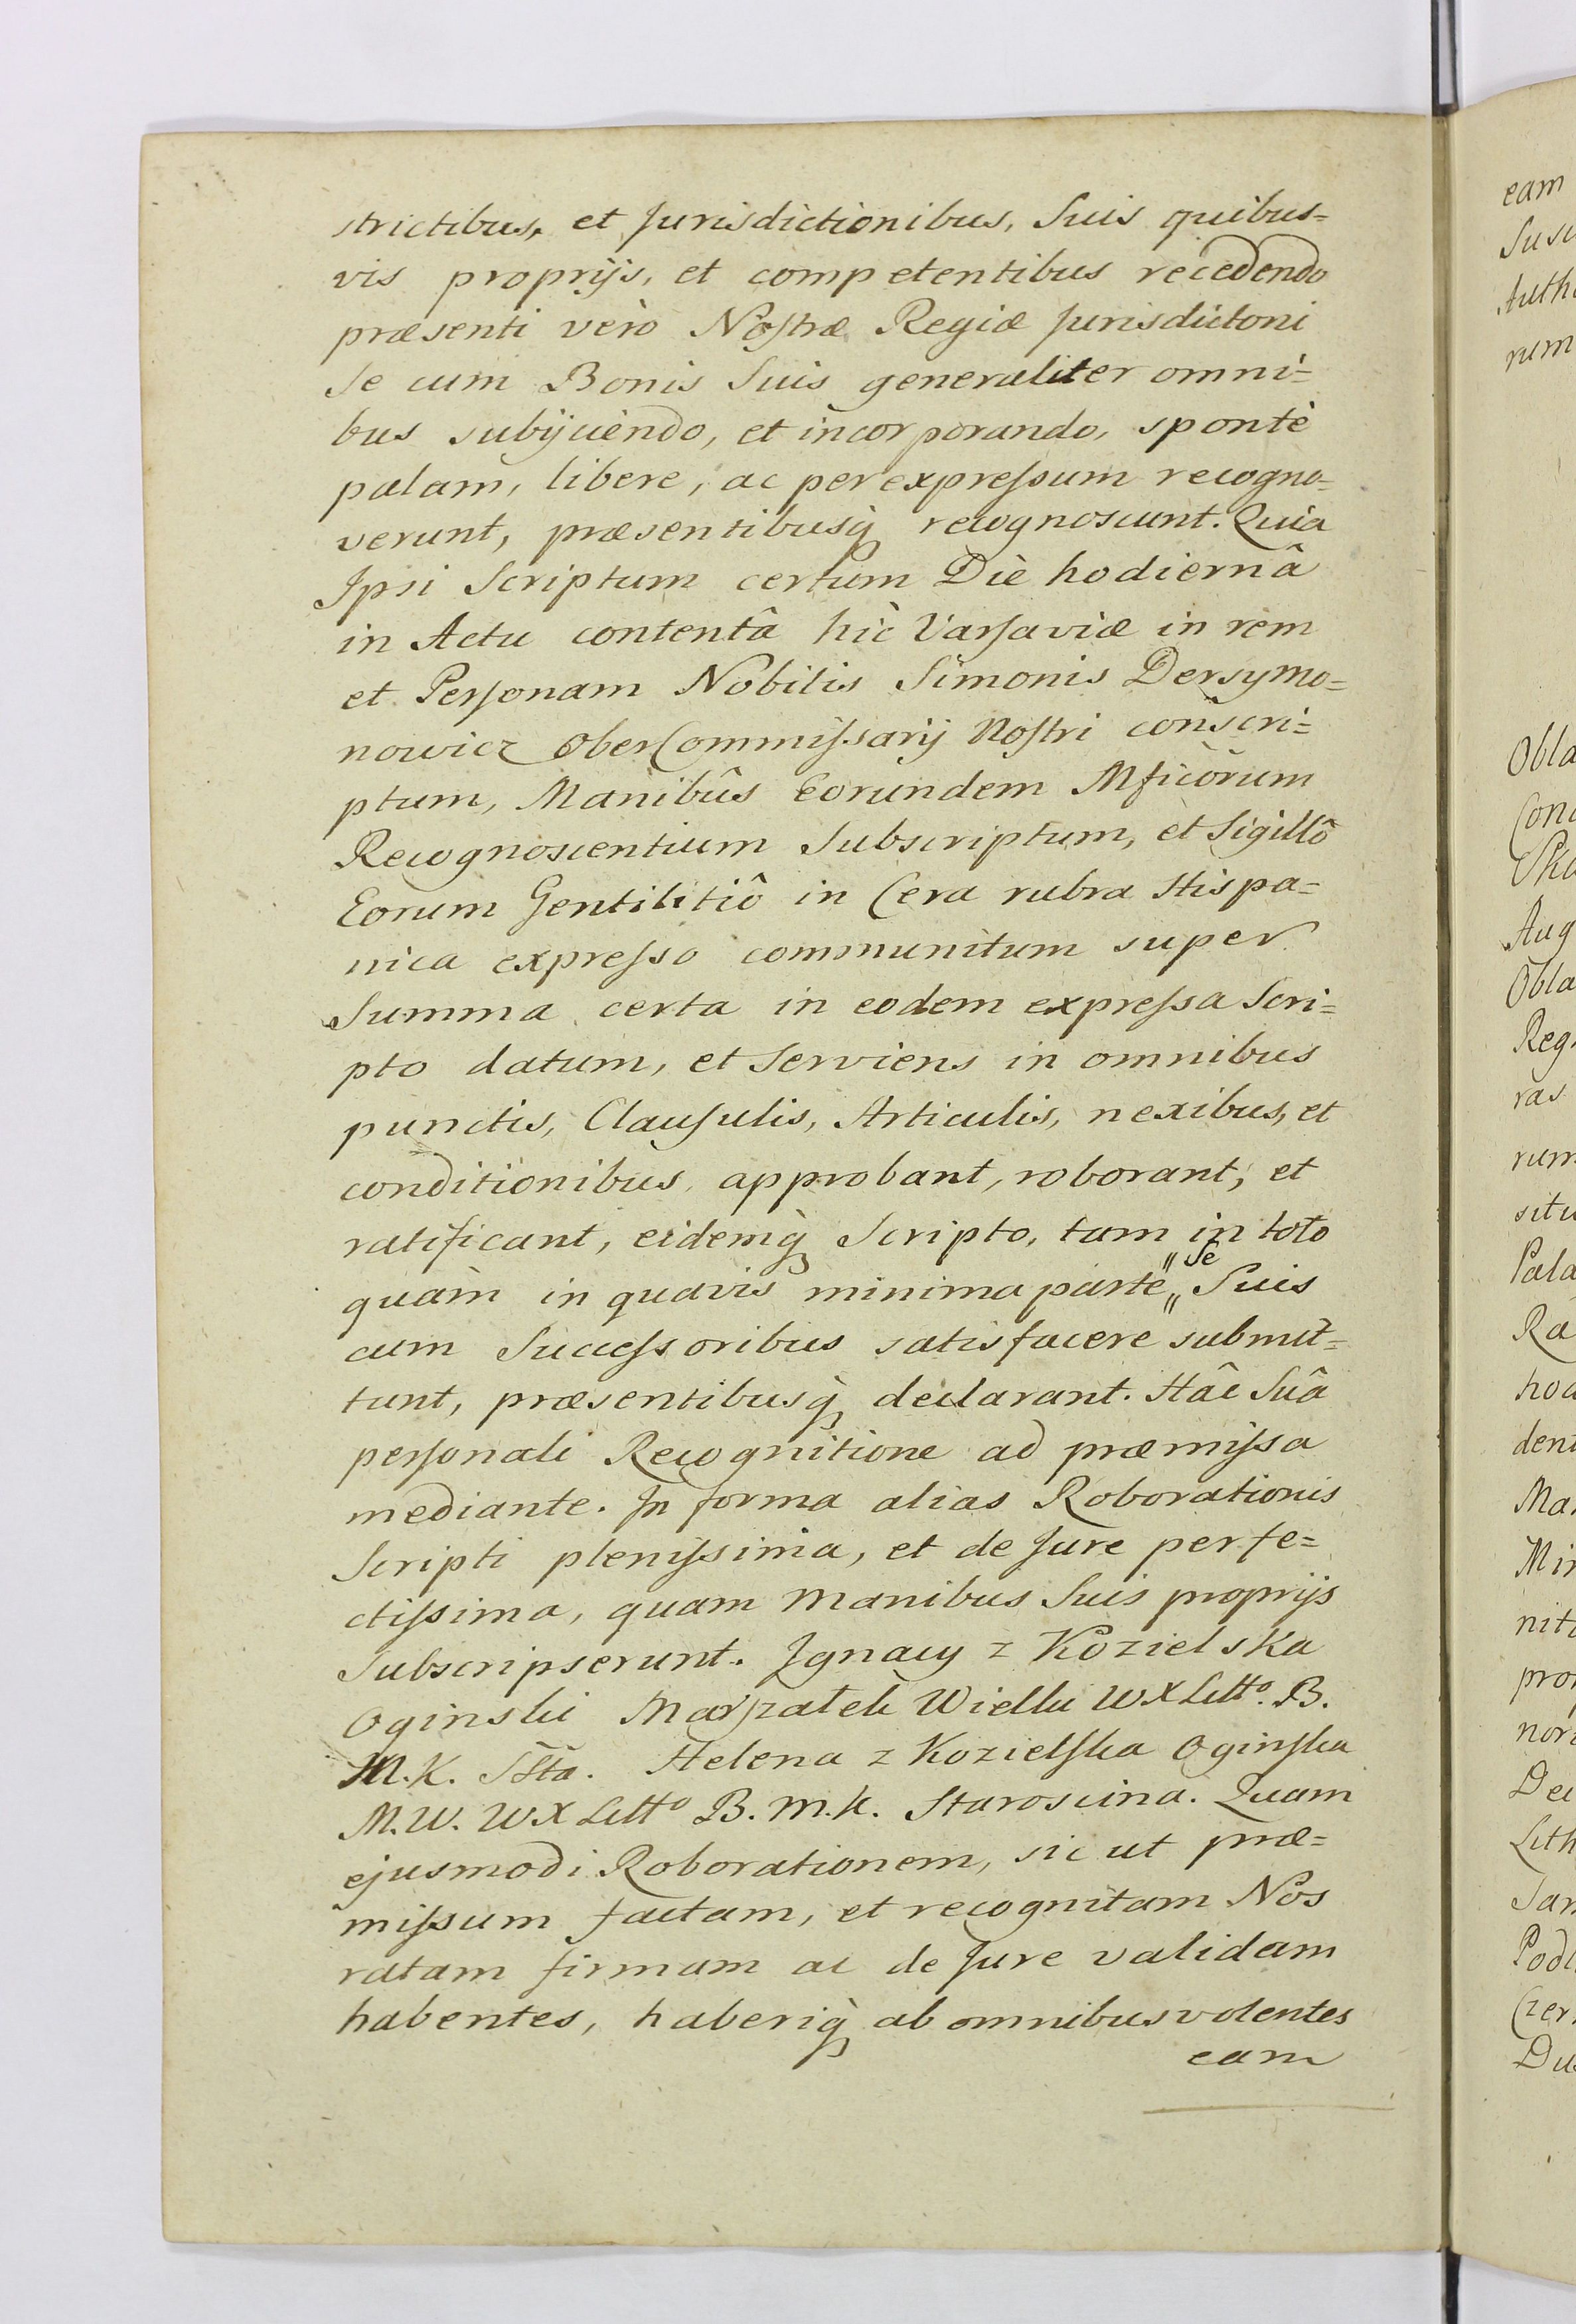 strictibus, et Jurisdictionibus, Suis quibus=
vis proprijs, et competentibus recedendo
præsenti verò Nostræ Regiæ Jurisdictoni
Se cum Bonis Suis generaliter omni=
bus subijciendo, et incorporando, spontè
palam, libere, ac per expressum recogno=
verunt, præsentibusq̀ recognoscunt. Quia
Ipsi Scriptum certum Diè hodiernâ
in Actu contentâ hìc Varsaviæ in rem
et Personam Nobilis Simonis Dersymo=
nowicz OberCommissarij Nostri conscri=
ptum, Manibûs Eorundem Mficorum
Recognoscentium Subscriptum, et Sigillô
Eorum Gentilitiô in Cera rubra Hispa=
nica expresso communitum super
Summa certa in eodem expressa Scri=
pto datum, et Serviens in omnibus
punctis, Clausulis, Articulis, nexibus, et
conditionibus approbant, roborant, et
ratificant, eidemq̀ Scripto, tam in toto
quàm in quavis minima parte „ Se „ Suis
cum Successoribus satisfacere submit=
tunt, præsentibusq̀ declarant. Hâc Suâ
personali Recognitione ad præmissa
mediante. In forma alias Roborationis
Scripti plenissima, et de Jure perfe=
ctissima, quam Manibus Suis proprijs
Subscripserunt. Ignacy z Kozielska
Oginski Marszałek Wielki WX Litto. B.
M.K. Stta. Helena z Kozielska Oginska
M.W. WX Litto B.M.K. Staroscina. Quam
ejusmodi Roborationem, sic ut præ=
missum factam, et recognitam Nos
ratam firmam ac de Jure validam
habentes, haberiq̀ ab omnibus volentes
eam
eam
rum
Reg.
ras
rum